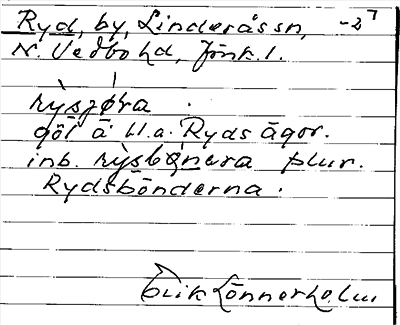 Ryd, by, Linderås sn, -27
N. Vedbo hd, Jönk. l.
rỳsgö̀ra
göl å u.a. Ryds ägor.
inb. rỳsbönera plur.
Rydsbönderna.
Erik Lönnerholm